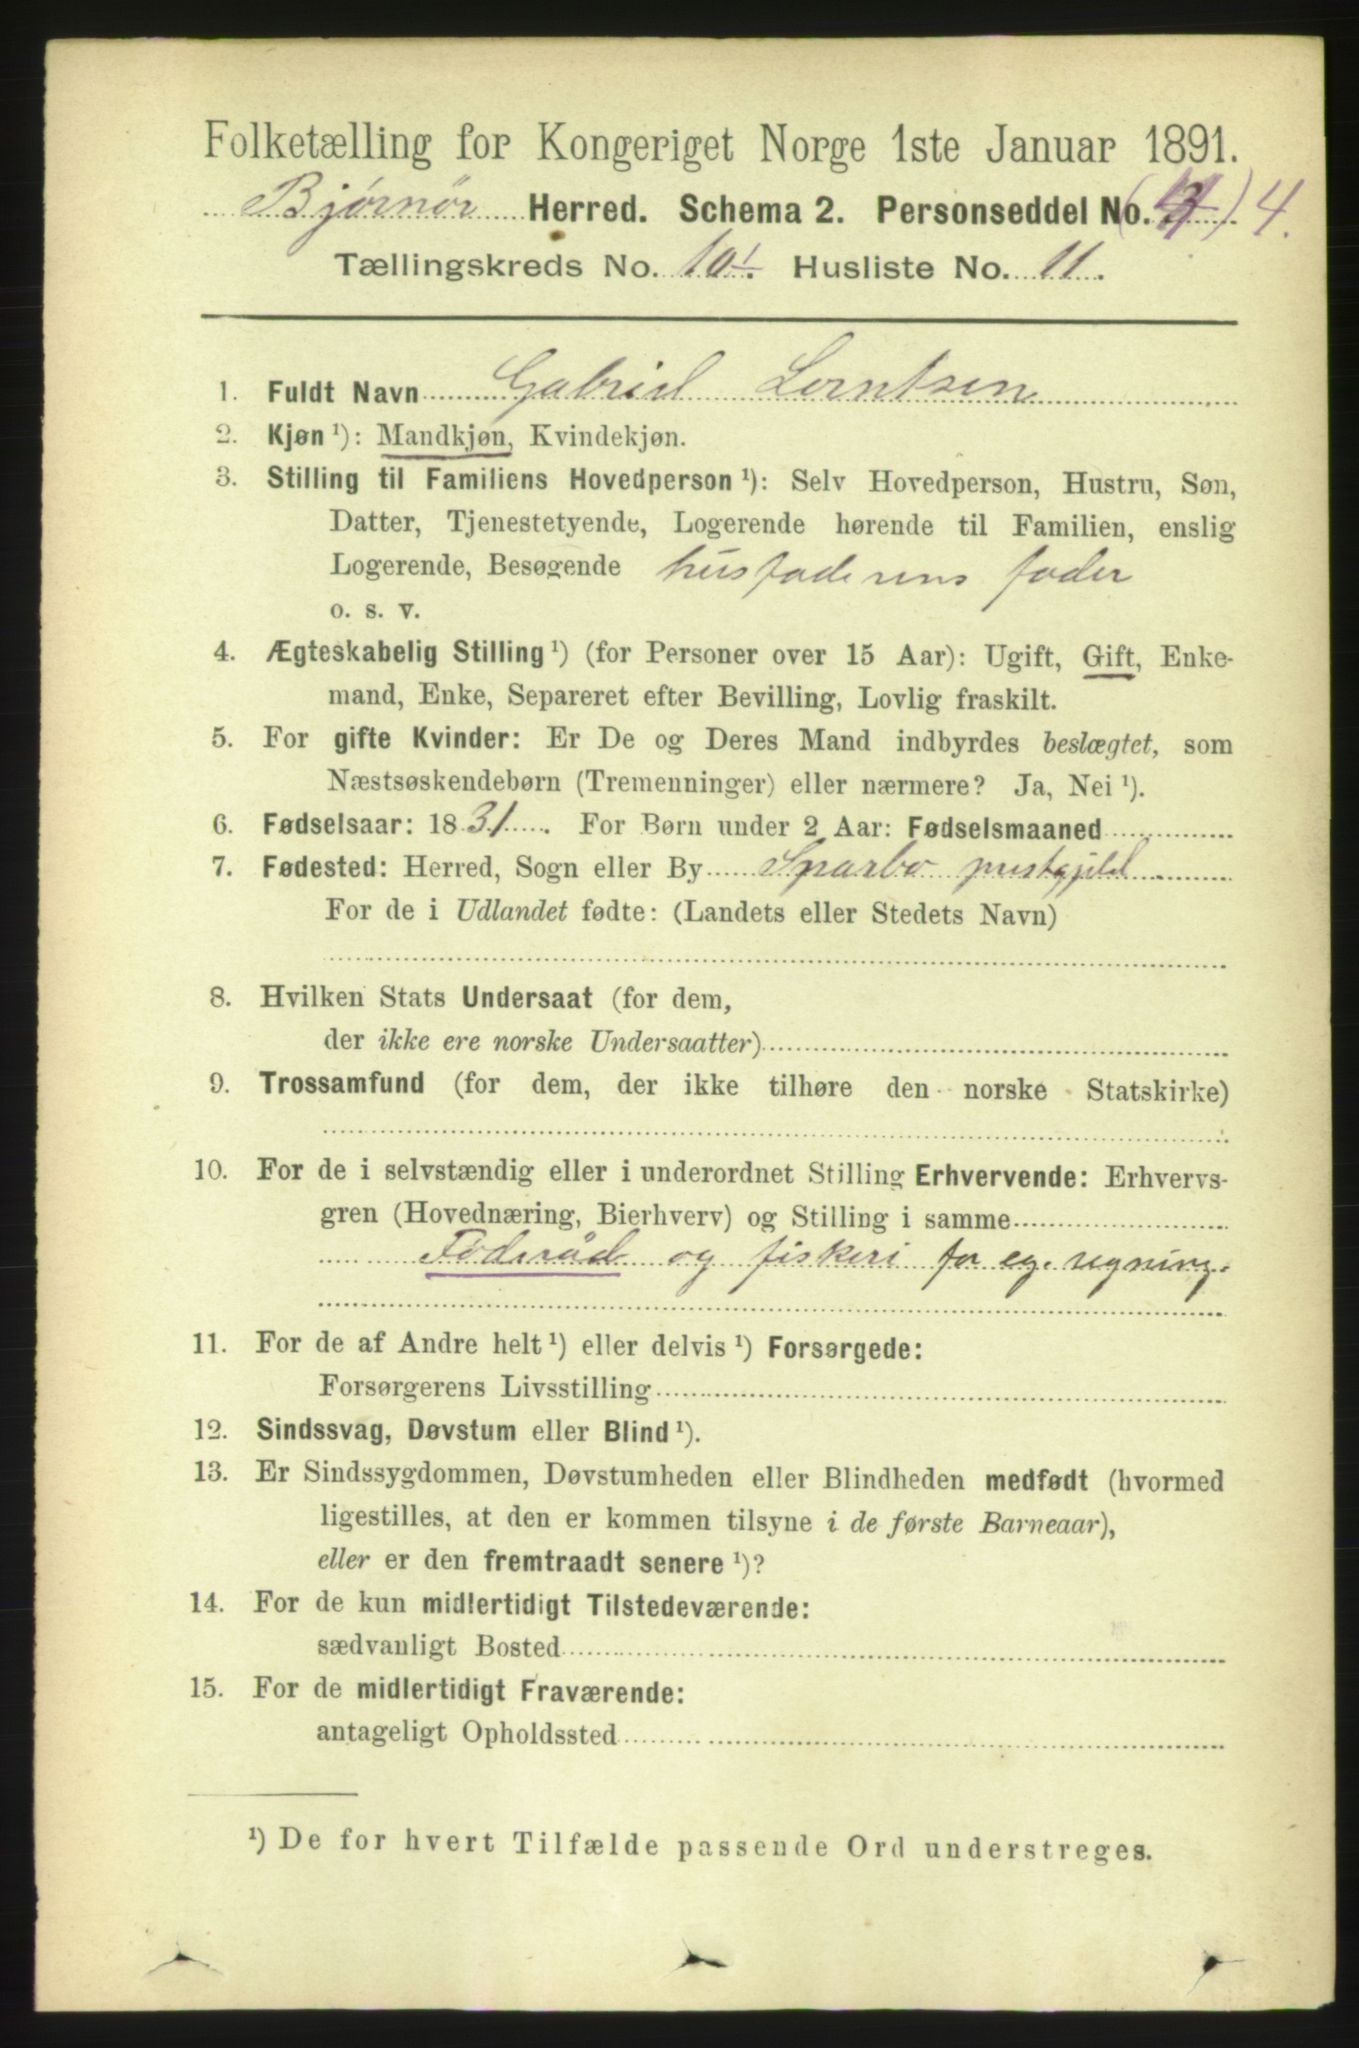 Folketælling for Kongeriget Norge 1ste Januar 1891.
Bjørnør Herred. Schema 2. Personseddel No. () 4.
Tællingskreds No. 10. Husliste No. 11.
1. Fuldt Navn Gabriel Lorntsen
2. Kjøn ¹): Mandkjøn, Kvindekjøn.
3. Stilling til Familiens Hovedperson ¹): Selv Hovedperson, Hustru, Søn,
Datter, Tjenestetyende, Logerende hørende til Familien, enslig
Logerende, Besøgende husfaderens fader
o. s. v.
4. Ægteskabelig Stilling ¹) (for Personer over 15 Aar): Ugift, Gift, Enke-
mand, Enke, Separeret efter Bevilling, Lovlig fraskilt.
5. For gifte Kvinder: Er De og Deres Mand indbyrdes beslægtet, som
Næstsøskendebørn (Tremenninger) eller nærmere? Ja, Nei ¹).
6. Fødselsaar: 1831. For Børn under 2 Aar: Fødselsmaaned
7. Fødested: Herred, Sogn eller By Sparbo prestegjeld
For de i Udlandet fødte: (Landets eller Stedets Navn)
8. Hvilken Stats Undersaat (for dem,
der ikke ere norske Undersaatter)
9. Trossamfund (for dem, der ikke tilhøre den norske Statskirke)
10. For de i selvstændig eller i underordnet Stilling Erhvervende: Erhvervs-
gren (Hovednæring, Bierhverv) og Stilling i samme
Føderåd og fiskeri for eg. regning.
11. For de af Andre helt ¹) eller delvis ¹) Forsørgede:
Forsørgerens Livsstilling
12. Sindssvag, Døvstum eller Blind ¹).
13. Er Sindssygdommen, Døvstumheden eller Blindheden medfødt (hvormed
ligestilles, at den er kommen tilsyne i de første Barneaar),
eller er den fremtraadt senere ¹)?
14. For de kun midlertidigt Tilstedeværende:
sædvanligt Bosted
15. For de midlertidigt Fraværende:
antageligt Opholdssted
¹) De for hvert Tilfælde passende Ord understreges.